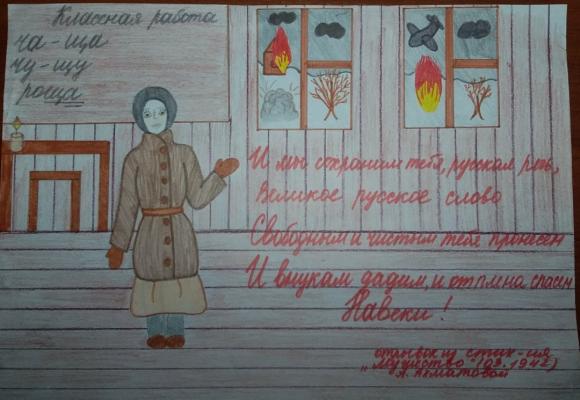 Классная работа
ча - ща
чу - щу
роща
И мы сохраним тебя, русская речь,
Великое русское слово
Свободным и чистым тебя пронесем
И внукам дадим, и от плена спасем
Навеки!
отрывок из стих-ия
„Мужество" (02. 1942)
А. Ахматовой